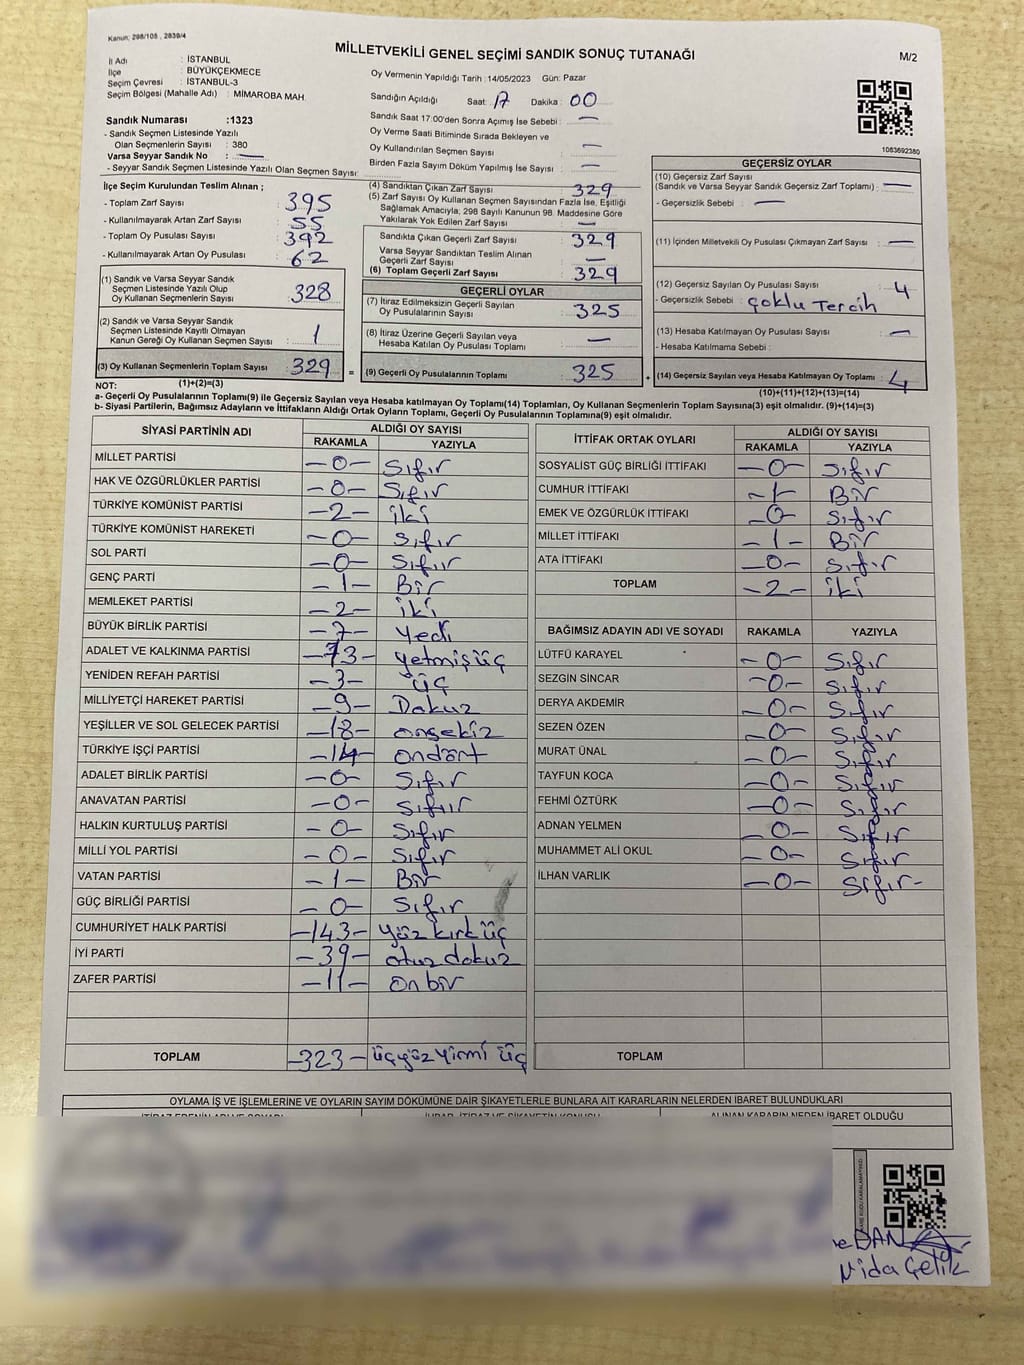 Kanun; 298/105 , 2839/4
MİLLETVEKİLİ GENEL SEÇİMİ SANDIK SONUÇ TUTANAĞI
M/2
İl Adı : İSTANBUL
İlçe : BÜYÜKÇEKMECE
Seçim Çevresi : İSTANBUL-3
Seçim Bölgesi (Mahalle Adı) : MİMAROBA MAH.
Oy Vermenin Yapıldığı Tarih :14/05/2023 Gün: Pazar
Sandığın Açıldığı Saat: 17 Dakika : 00
Sandık Saat 17:00'den Sonra Açımış İse Sebebi : —
Oy Verme Saati Bitiminde Sırada Bekleyen ve
Oy Kullandırılan Seçmen Sayısı : —
Birden Fazla Sayım Döküm Yapılmış İse Sayısı : —
1083692380
Sandık Numarası :1323
- Sandık Seçmen Listesinde Yazılı
Olan Seçmenlerin Sayısı : 380
Varsa Seyyar Sandık No : —
- Seyyar Sandık Seçmen Listesinde Yazılı Olan Seçmen Sayısı:
İlçe Seçim Kurulundan Teslim Alınan ;
- Toplam Zarf Sayısı : 395
- Kullanılmayarak Artan Zarf Sayısı : 55
- Toplam Oy Pusulası Sayısı : 392
- Kullanılmayarak Artan Oy Pusulası : 62
(1) Sandık ve Varsa Seyyar Sandık
Seçmen Listesinde Yazılı Olup
Oy Kullanan Seçmenlerin Sayısı : 328
(2) Sandık ve Varsa Seyyar Sandık
Seçmen Listesinde Kayıtlı Olmayan
Kanun Gereği Oy Kullanan Seçmen Sayısı : 1
(3) Oy Kullanan Seçmenlerin Toplam Sayısı : 329
(1)+(2)=(3)
(4) Sandıktan Çıkan Zarf Sayısı : 329
(5) Zarf Sayısı Oy Kullanan Seçmen Sayısından Fazla İse, Eşitliği
Sağlamak Amacıyla; 298 Sayılı Kanunun 98. Maddesine Göre
Yakılarak Yok Edilen Zarf Sayısı : —
Sandıkta Çıkan Geçerli Zarf Sayısı : 329
Varsa Seyyar Sandıktan Teslim Alınan
Geçerli Zarf Sayısı : —
(6) Toplam Geçerli Zarf Sayısı : 329
GEÇERLİ OYLAR
(7) İtiraz Edilmeksizin Geçerli Sayılan
Oy Pusulalarının Sayısı : 325
(8) İtiraz Üzerine Geçerli Sayılan veya
Hesaba Katılan Oy Pusulası Toplamı : —
= (9) Geçerli Oy Pusulalarının Toplamı : 325
GEÇERSİZ OYLAR
(10) Geçersiz Zarf Sayısı
(Sandık ve Varsa Seyyar Sandık Geçersiz Zarf Toplamı) : —
- Geçersizlik Sebebi : —
(11) İçinden Milletvekili Oy Pusulası Çıkmayan Zarf Sayısı : —
(12) Geçersiz Sayılan Oy Pusulası Sayısı : 4
- Geçersizlik Sebebi : çoklu Tercih
(13) Hesaba Katılmayan Oy Pusulası Sayısı : —
- Hesaba Katılmama Sebebi :
+ (14) Geçersiz Sayılan veya Hesaba Katılmayan Oy Toplamı : 4
(10)+(11)+(12)+(13)=(14)
NOT:
a- Geçerli Oy Pusulalarının Toplamı(9) ile Geçersiz Sayılan veya Hesaba katılmayan Oy Toplamı(14) Toplamları, Oy Kullanan Seçmenlerin Toplam Sayısına(3) eşit olmalıdır. (9)+(14)=(3)
b- Siyasi Partilerin, Bağımsız Adayların ve İttifakların Aldığı Ortak Oyların Toplamı, Geçerli Oy Pusulalarının Toplamına(9) eşit olmalıdır.
SİYASİ PARTİNİN ADI ALDIĞI OY SAYISI
RAKAMLA YAZIYLA
MİLLET PARTİSİ -0- Sıfır
HAK VE ÖZGÜRLÜKLER PARTİSİ -0- Sıfır
TÜRKİYE KOMÜNİST PARTİSİ -2- iki
TÜRKİYE KOMÜNİST HAREKETİ -0- Sıfır
SOL PARTİ -0- Sıfır
GENÇ PARTİ -1- Bir
MEMLEKET PARTİSİ -2- iki
BÜYÜK BİRLİK PARTİSİ -7- Yedi
ADALET VE KALKINMA PARTİSİ -73- yetmişüç
YENİDEN REFAH PARTİSİ -3- üç
MİLLİYETÇİ HAREKET PARTİSİ -9- Dokuz
YEŞİLLER VE SOL GELECEK PARTİSİ -18- onsekiz
TÜRKİYE İŞÇİ PARTİSİ -14- ondört
ADALET BİRLİK PARTİSİ -0- Sıfır
ANAVATAN PARTİSİ -0- Sıfır
HALKIN KURTULUŞ PARTİSİ -0- Sıfır
MİLLİ YOL PARTİSİ -0- Sıfır
VATAN PARTİSİ -1- Bir
GÜÇ BİRLİĞİ PARTİSİ -0- Sıfır
CUMHURİYET HALK PARTİSİ -143- yüz kırk üç
İYİ PARTİ -39- otuz dokuz
ZAFER PARTİSİ -11- Onbir
TOPLAM -323- üçyüz yirmi üç
İTTİFAK ORTAK OYLARI ALDIĞI OY SAYISI
RAKAMLA YAZIYLA
SOSYALİST GÜÇ BİRLİĞİ İTTİFAKI -0- Sıfır
CUMHUR İTTİFAKI -1- Bir
EMEK VE ÖZGÜRLÜK İTTİFAKI -0- Sıfır
MİLLET İTTİFAKI -1- Bir
ATA İTTİFAKI -0- Sıfır
TOPLAM -2- iki
BAĞIMSIZ ADAYIN ADI VE SOYADI RAKAMLA YAZIYLA
LÜTFÜ KARAYEL -0- Sıfır
SEZGİN SİNCAR -0- Sıfır
DERYA AKDEMİR -0- Sıfır
SEZEN ÖZEN -0- Sıfır
MURAT ÜNAL -0- Sıfır
TAYFUN KOCA -0- Sıfır
FEHMİ ÖZTÜRK -0- Sıfır
ADNAN YELMEN -0- Sıfır
MUHAMMET ALİ OKUL -0- Sıfır
İLHAN VARLIK -0- Sıfır-
TOPLAM
OYLAMA İŞ VE İŞLEMLERİNE VE OYLARIN SAYIM DÖKÜMÜNE DAİR ŞİKAYETLERLE BUNLARA AİT KARARLARIN NELERDEN İBARET BULUNDUKLARI
İTİRAZ EDENİN ADI VE SOYADI İHBAR, İTİRAZ VE ŞİKAYETİN KONUSU ALINAN KARARIN NEDEN İBARET OLDUĞU
Nida Çelik